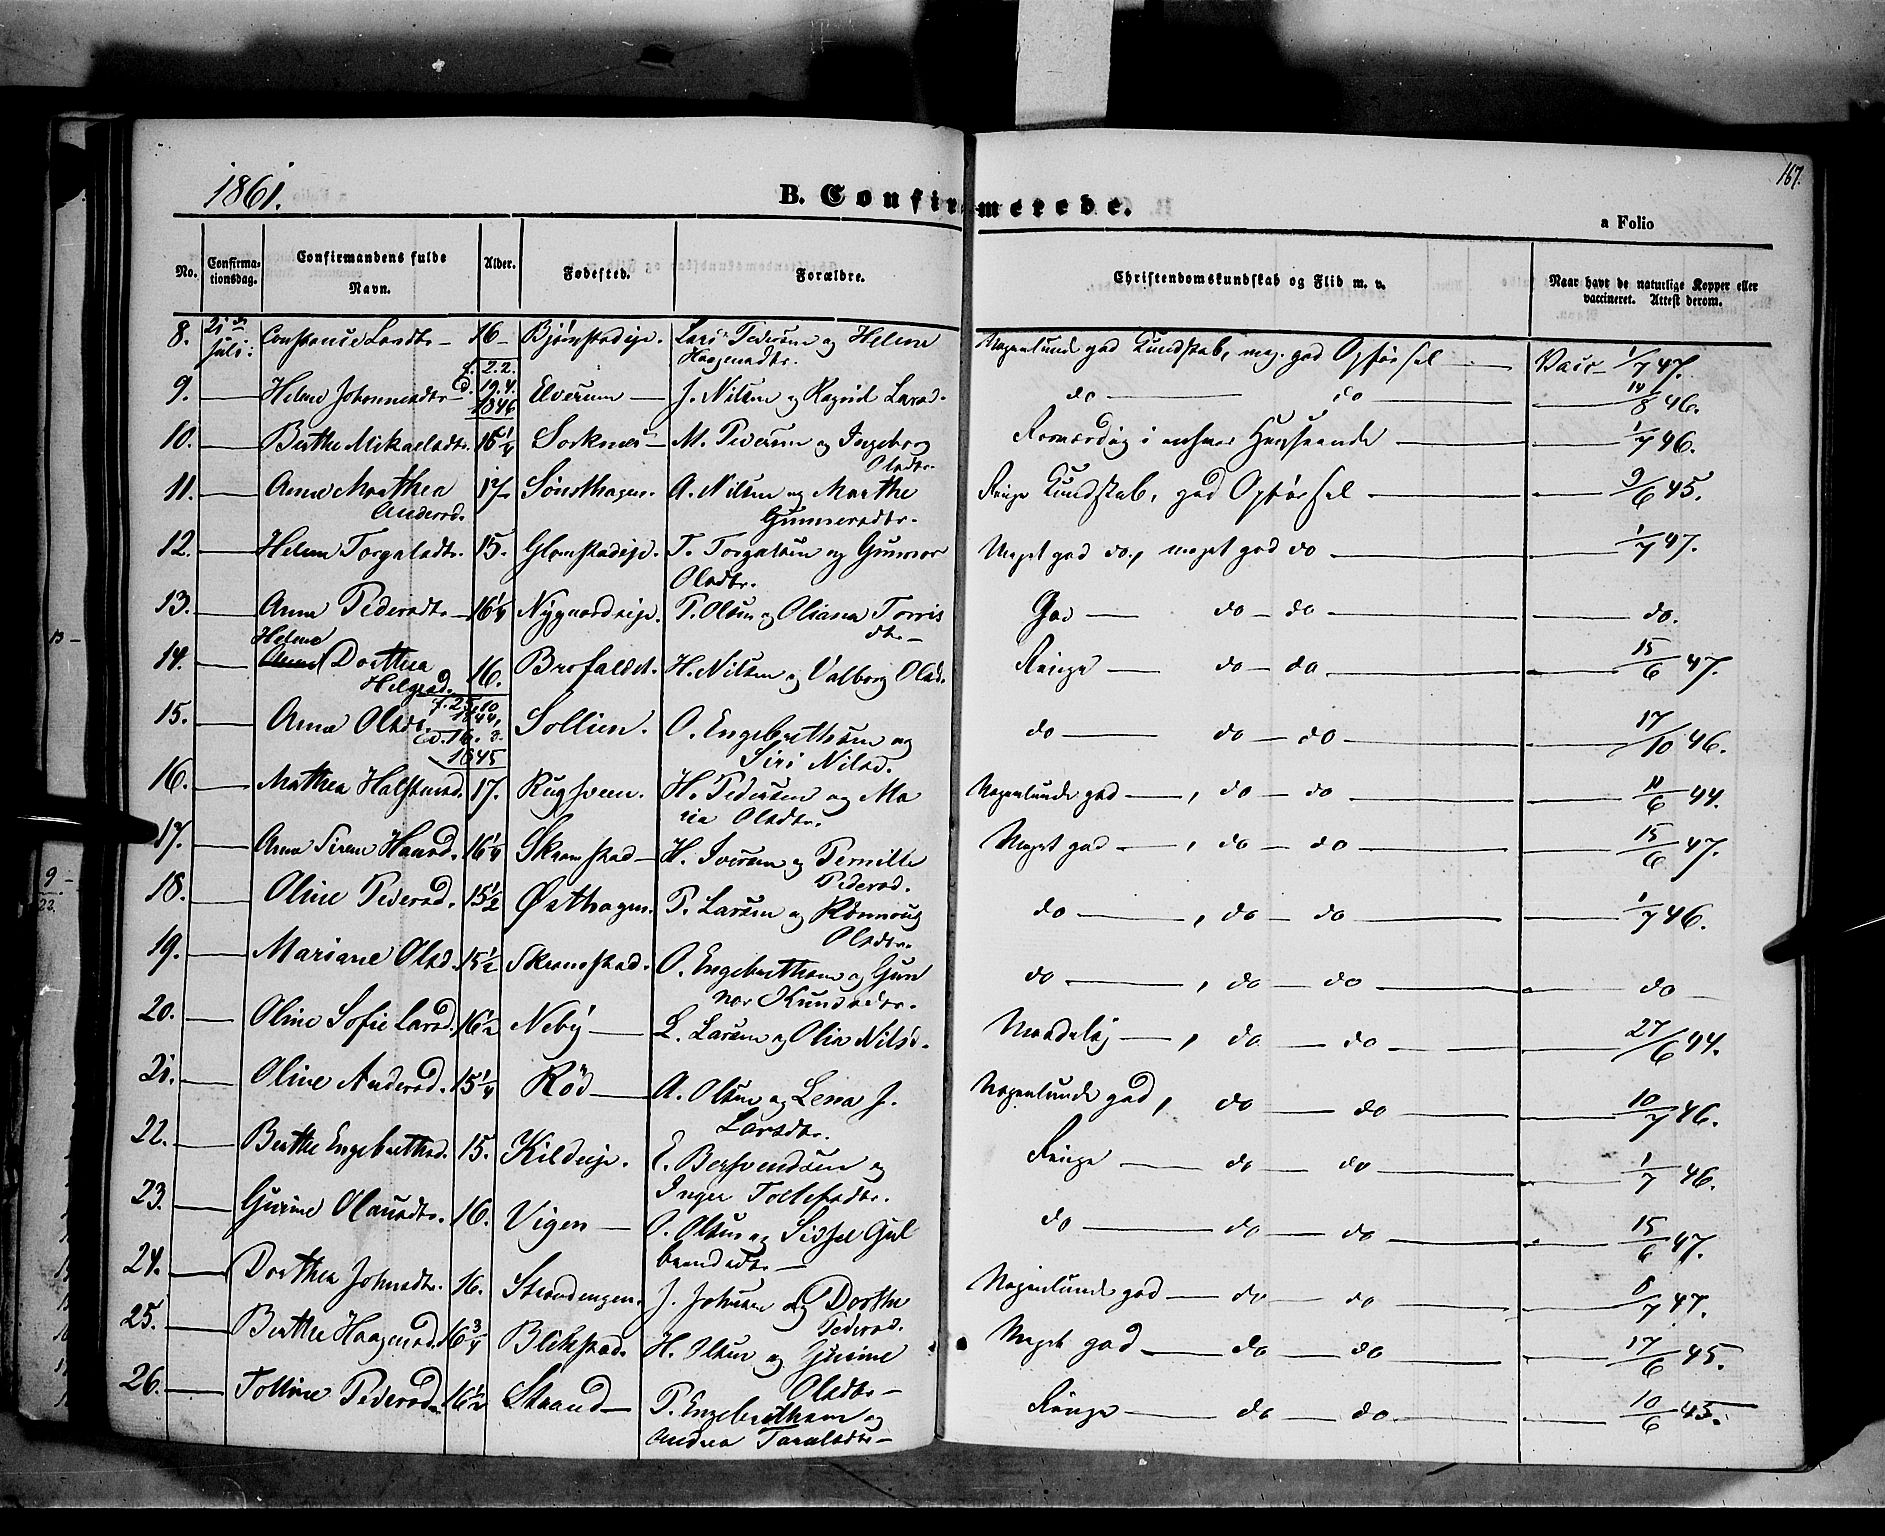 1861.
B. Confirmerede.
167.
a Folio
No.
Confirma-
tionsdag.
Confirmandens fulde
Navn.
Alder.
Fødested.
Forældre.
Christendomskundskab og Flid m. v.
Naar havt de naturlige Kopper eller
vaccineret. Attest derom.
8. 21 Juli: Constance Larsdtr. 16 Bjørnstadeje. Lars Pedersen og Helene
Haagensdtr. Nogenlunde god Kundskab, meg. god Opførsel Vacc 1/7 47.
f. 2. 2.
9. Helene Johannesdtr. d. 19. 4. 1846 Elverum J. Nilsen og Ragnild Larsd. do do 8 46.
10. Berthe Mikaelsdtr. Sorknes M. Pedersen og Ingeborg
Olsdtr. 1/7 46.
11. Anne Marthea
Andersd. 17 Sønsthagen. A. Nilsen og Marthe
Gunnersdtr. Ringe Kundskab, god Opførsel 9/6 45.
12. Helene Torgalsdtr. 15. Glomstadeje. T. Torgalsen og Gunnor
Olsdtr. Meget god do, meget god do 1/7 47.
13. Anne Pedersdtr. 16 1/4 Nygaardseje. P. Olsen og Oliana Torris
dtr. God do do do.
14. Helene
Dorthea
Helgesd. 16. Brofaldet. H. Nilsen og Valborg Olsd. Ringe do do 15/6 47.
15. Anne Olsdtr. f. 25. 10
1844, d. 16. 3.
1845 Sollien. O. Engebrethsen og
Siri Nilsd. do do do 17/10 46.
16. Mathea Halstensd. 17. Rugsveen. H. Pedersen og Ma
ria Olsdtr. Nogenlunde god, do do 11/6 44.
17. Anne Sirene Hansd. 16 1/4 Skramstad H. Iversen og Pernille
Pedersd. Meget god, do do 15/6 47.
18. Oline Pedersd. 15 1/2 Østhagen. P. Larsen og Rønnoug
Olsdtr. do, do do 1/7 46.
19. Mariane Olsd. 15 1/2 Skramstad. O. Engebrethsen og Gun
nor Knudsdtr. do, do do do
20. Oline Sofie Larsd. 16 1/2 Neby L. Larsen og Olia Nilsd. Maadelig, do do 27/6 44.
21. Oline Andersd. 15 1/4 Rød A. Olsen og Lena J.
Larsdtr. Nogenlunde god, do do 10/7 46.
22. Berthe Engebrethsd. 15. Kildeeje. E. Bersvendsen og
Inger Tollefsdtr. Ringe do do 1/7 46.
23. Gurine Olausdtr. 16. Vigen O. Olsen og Sissel Gul
brandsdtr. do do do 15/6 47.
24. Dorthea Johnsdtr. 16. Strandengen. J. Johnsen og Dorthe
Pedersd. Nogenlunde god do do 8/7 47.
25. Berthe Haagensd. 16 3/4 Blikstad. H. Olsen og Gurine
Olsdtr. Meget god do do 17/6 45.
26. Tolline Pedersd. 16 1/2 Strand P. Engebrethsen og
Andrea Taralsdtr. Ringe do do 10/6 45.